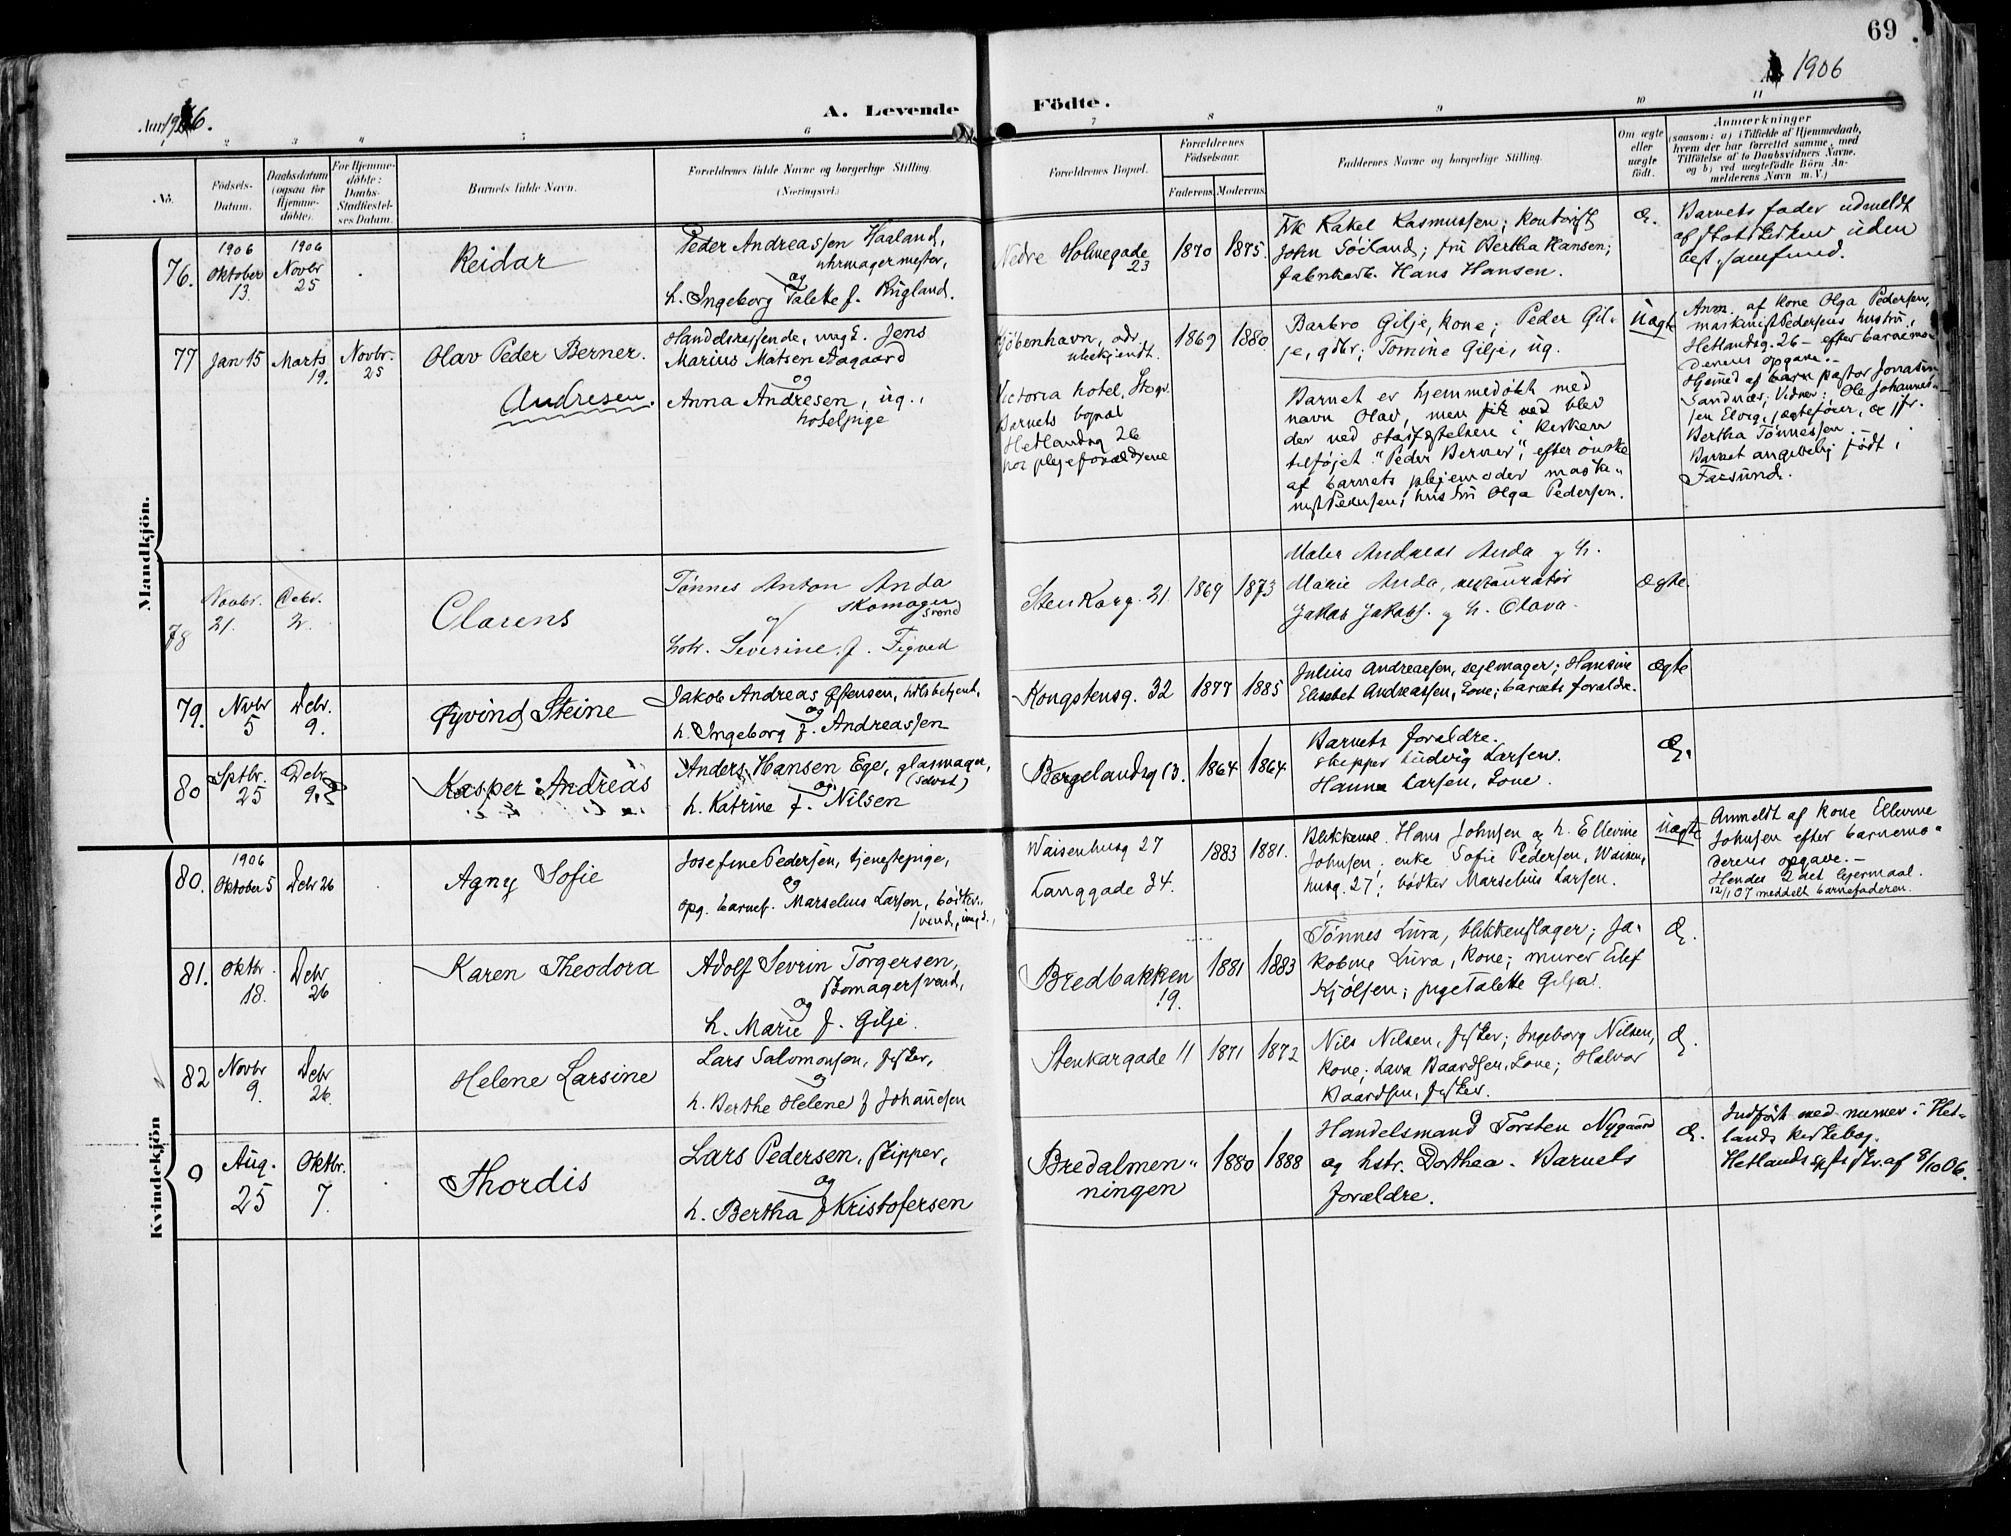 69
Aar 1906.
A. Levende Födte.
1906
1
2
3
4
5
6
7
8
9
10
11
No.
Födsels-
Datum.
Daabsdatum
(ogsaa for
Hjemme-
döbte).
For Hjemme-
döbte:
Daabs-
Stadfæstel-
ses Datum.
Barnets fulde Navn.
Forældrenes fulde Navne og borgerlige Stilling
(Næringsvei.)
Forældrenes Bopæl.
Forældrenes
Födselsaar.
Faderens.
Moderens.
Faddernes Navne og borgerlige Stilling.
Om ægte
eller
uægte
födt.
Anmærkninger
(saasom: a) i Tilfælde af Hjemmedaab,
hvem der har forrettet samme, med
Tilföielse af to Daabsvidners Navne,
og b) ved uægtefödte Börn An-
melderens Navn m. V.)
Mandkjön.
76.
1906
Oktober
13.
1906
Novbr
25
Reidar
Peder Andreassen Haaland,
uhrmagermester,
og
h. Ingeborg Talette f. Rugland.
Nedre Holmegade
23
1870
1875.
Frk Rakel Rasmussen; kontorist
John Söiland; fru Bertha Hansen;
fabrikarb. Hans Hansen.
Æ.
Barnets fader udmeldt
af statskirken uden
best. samfund.
77
Jan 15
Marts
19.
Novbr.
25
Olav Peder Berner.
Andresen.
Handelsreisende, ungk. Jens
Marius Matsen Aagaard
og
Anna Andresen, ug.,
hotelpige
Kjöbenhavn, adr.
ubekjendt.
Victoria hotel, Stvgr.
Barnets bopæl
Hetlandsg 26
hos plejeforældrene
1869
1880
Barbro Gilje, kone; Peder Gil-
je, gdbr; Tomine Gilje, ug.
Barnet er hjemmedøbt med
navn Olav, men fik ved blev
der ved stadfæstelsen i kirken
tilføjet "Peder Berner", efter ønske
af barnets plejemoder maski-
nist Pedersens hustru Olga Pedersen.
Uægte
Anm. af kone Olga Pedersen,
maskinist Pedersens hustru,
Hetlandsg. 26 – efter barnemo-
derens opgave. –
Hjemed af barn pastor Jonassen
Sandnæs; Vidner: Ole Johannes-
sen Elvrg, jægtefører, og jfr.
Bertha Tönnessen. –
Barnet angivelig født i
Farsund.
78
Novbr.
21.
Debr.
2.
Clarens
Tönnes Anton Anda
skomager
svend
og
hstr. Severine f. Figved
Stenkarg. 21
1869
1873
Maler Andreas Anda og h.
Marie Anda, restauratör
Jakob Jakobs. og h. Olava.
Ægte.
79.
Novbr
5
Debr.
9.
Øyvind Steine
Jakob Andreas Østensen, toldbetjent,
og
h. Ingeborg f. Andreassen
Kongstensg. 32
1877
1885
Julius Andreassen, sejlmager; Hansine
Elisabet Andreassen, kone; barnets forældre.
Ægte
80
Sptbr.
25
Debr
9.
Kasper Andreas
Anders Hansen Ege, glasmager,
(selvst)
og
h. Katrine f. Nilsen
Bergelandsg 13.
1864
1864
Barnets forældre.
skipper Ludvig Larsen.
Hanna Larsen, kone.
Æ.
Kvindekjön
80.
1906
Oktober 5
Debr 26
Agny Sofie
Josefine Pedersen, tjenestepige,
og
opg. barnef. Marselius Larsen, bödker-
svend, ungk.
Waisenhusg 27
Langgade 34.
1883
1881.
Blikkensl. Hans Johnsen og h. Ellevine
Johnsen; enke Sofie Pedersen, Waisen-
husg. 27; bödker Marselius Larsen.
Uægte
Anmeldt af kone Ellevine
Johnsen efter barnemo-
derens opgave. –
Hendes 2det lejermaal.
12/1 07 meddelt barnefaderen.
81.
Oktbr.
18.
Debr
26
Karen Theodora
Adolf Sevrin Torgersen,
skomagersvend,
og
h. Marie f. Gilje.
Bredbakken
19.
1881
1883
Tönnes Lura, blikkenslager; Ja-
kobine Lura, kone; murer Elef
Kjölsen; pige Talette Gilje.
Æ.
82
Novbr
9.
Debr
26.
Helene Larsine
Lars Salomonsen, fisker,
og
h. Berthe Helene f Johansen
Stenkargade 11
1871
1872
Nils Nilsen, fisker; Ingeborg Nilsen,
kone; Lava Baardsen, kone; Halvor
Baardsen, fisker.
Æ.
0
Aug.
25
Oktbr.
7.
Thordis
Lars Pedersen, skipper,
og
h. Bertha f Kristofersen
Bredalmen-
ningen
1880
1888
Handelsmand Torsten Nygaard
og hstr. Dorthea. Barnets
forældre.
Æ.
Indført med numer i Het-
lands kirkebog.
Hetlands spr. skr. af 8/10 06.